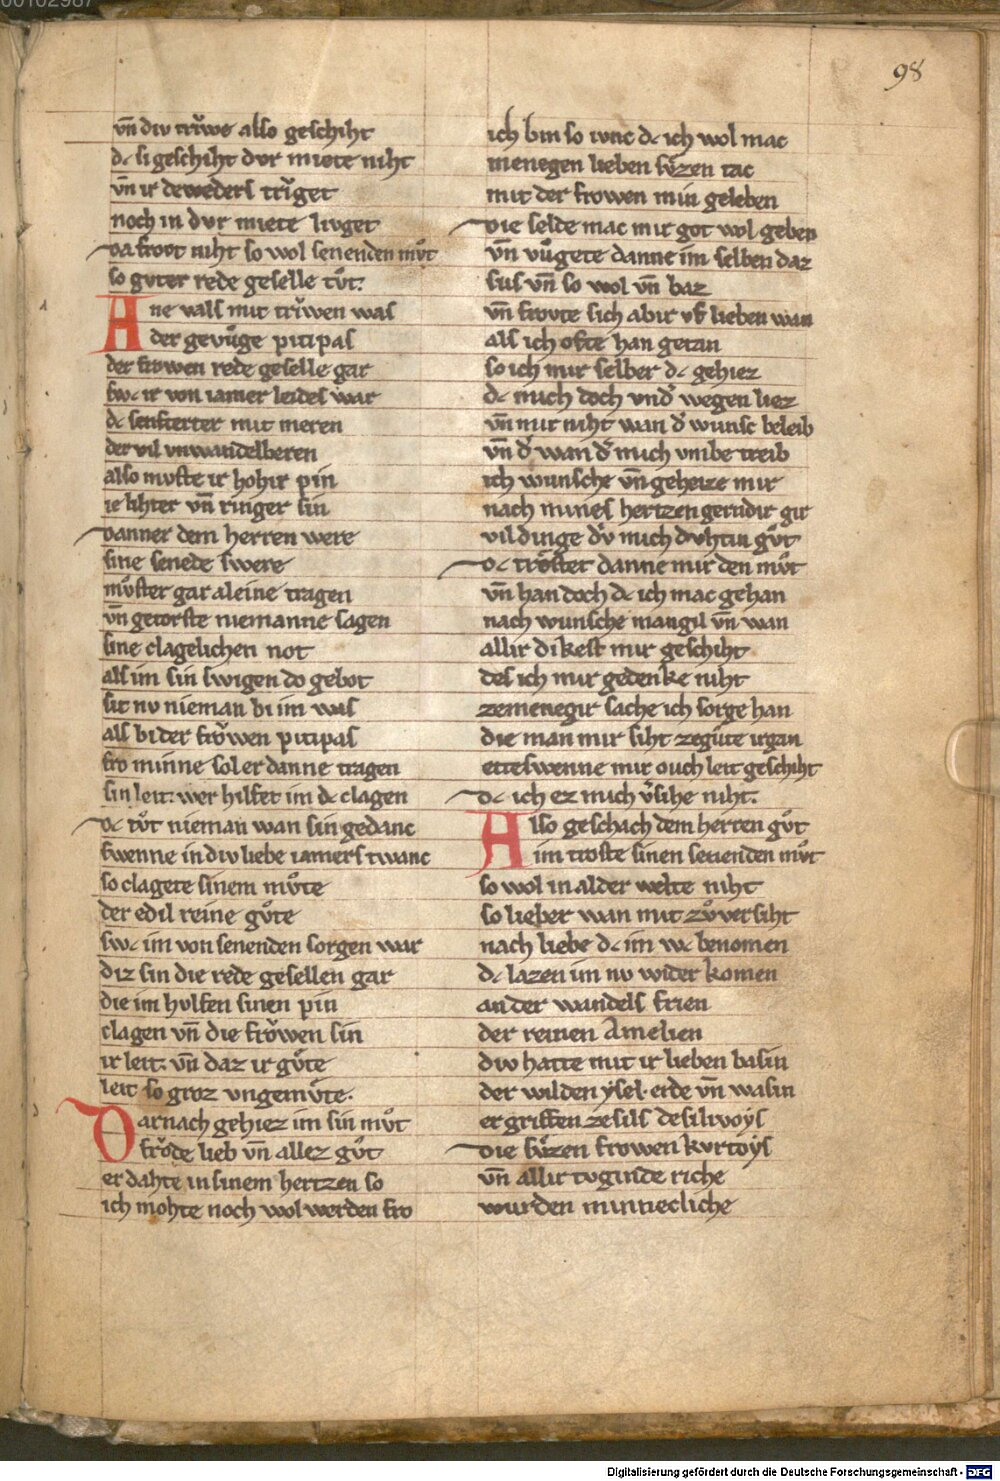 98
vn̄ div trv̾we also geschiht
dc si geschiht dvr miete niht
vn̄ ir deweders trv̾get
noch in dvr miete livget
Da frovt niht so wol senenden mv̊t
so gvter rede geselle tv̊t.
Ane vals mit trv̾wen was
der gevu̍ge pitipas
der frowen rede geselle gar
swc ir von iamer leides war
dc senfterter mit meren
der vil vnwandelberen
also mvste ir hohir pin
ie lihter vn̄ ringer sin
Danner dem herren were
sine senede swere
mv̊ster gar aleine tragen
vn̄ getorste niemanne sagen
sine clagelichen not
als im sin swigen do gebot
sit nv nieman bi im was
als bi der frǒwen pitipas
fro minne sol er danne tragen
sin leit. wer hilfet im dc clagen
Dc tv̊t nieman wan sin gedanc
swenne in div liebe iamers twanc
so clagete sinem mv̊te
der edil reine gv̊te
swc im von senenden sorgen war
diz sin die rede gesellen gar
die im hvlfen sinen pin
clagen vn̄ die frǒwen sin
ir leit. vn̄ daz ir gv̊te
leit so groz vngemv̊te.
Darnach gehiez im sin mv̊t
frǒde lieb vn̄ allez gv̊t
er dahte in sinem hertzen so
ich mohte noch wol werden fro
ich bin so ivnc dc ich wol mac
menegen lieben sv̊zen tac
mit der frowen min geleben
Die selde mac mir got wol geben
vn̄ vu̍gete danne im selben daz
sus vn̄ so wol vn̄ baz
vn̄ frovte sich abir vf lieben wan
als ich ofte han getan
so ich mir selber dc gehiez
dc mich doch vnd̾ wegen liez
vn̄ mir niht wan d̾ wunsc beleib
vn̄ d̾ wan d̾ mich vmbe treib
ich wunsche vn̄ geheize mir
nach mines hertzen gernder gir
vil dinge dv̾ mich dvhtin gv̊t
Dc trǒstet danne mir den mv̊t
vn̄ han doch dc ich mac gehan
nach wunsche mangil vn̄ wan
allir dikest mir geschiht
des ich mir gedenke niht
zemenegir sache ich sorge han
die man mir siht zegv̊te irgan
etteswenne mir ouch leit geschiht
Dc ich ez mich v̾sihe niht.
Also geschach dem herren gv̊t
im troste sinen senenden mv̊t
so wol in al der welte niht
so lieber wan mit zv̊versiht
nach liebe dc im wc benomen
dc lazen im nv wider komen
an der wandels frien
der reinen Amelien
div hatte mit ir lieben basin
der wilden ysel. erde vn̄ wasin
ergriffen ze sils desilwoẏs
Die sv̊zen frowen kvrtoẏs
vn̄ allir tvginde riche
wurden minnecliche
Digitalisierung gefördert durch die Deutsche Forschungsgemeinschaft - DFG